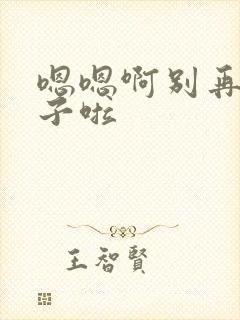 嗯嗯啊别再
子啦
王智賢